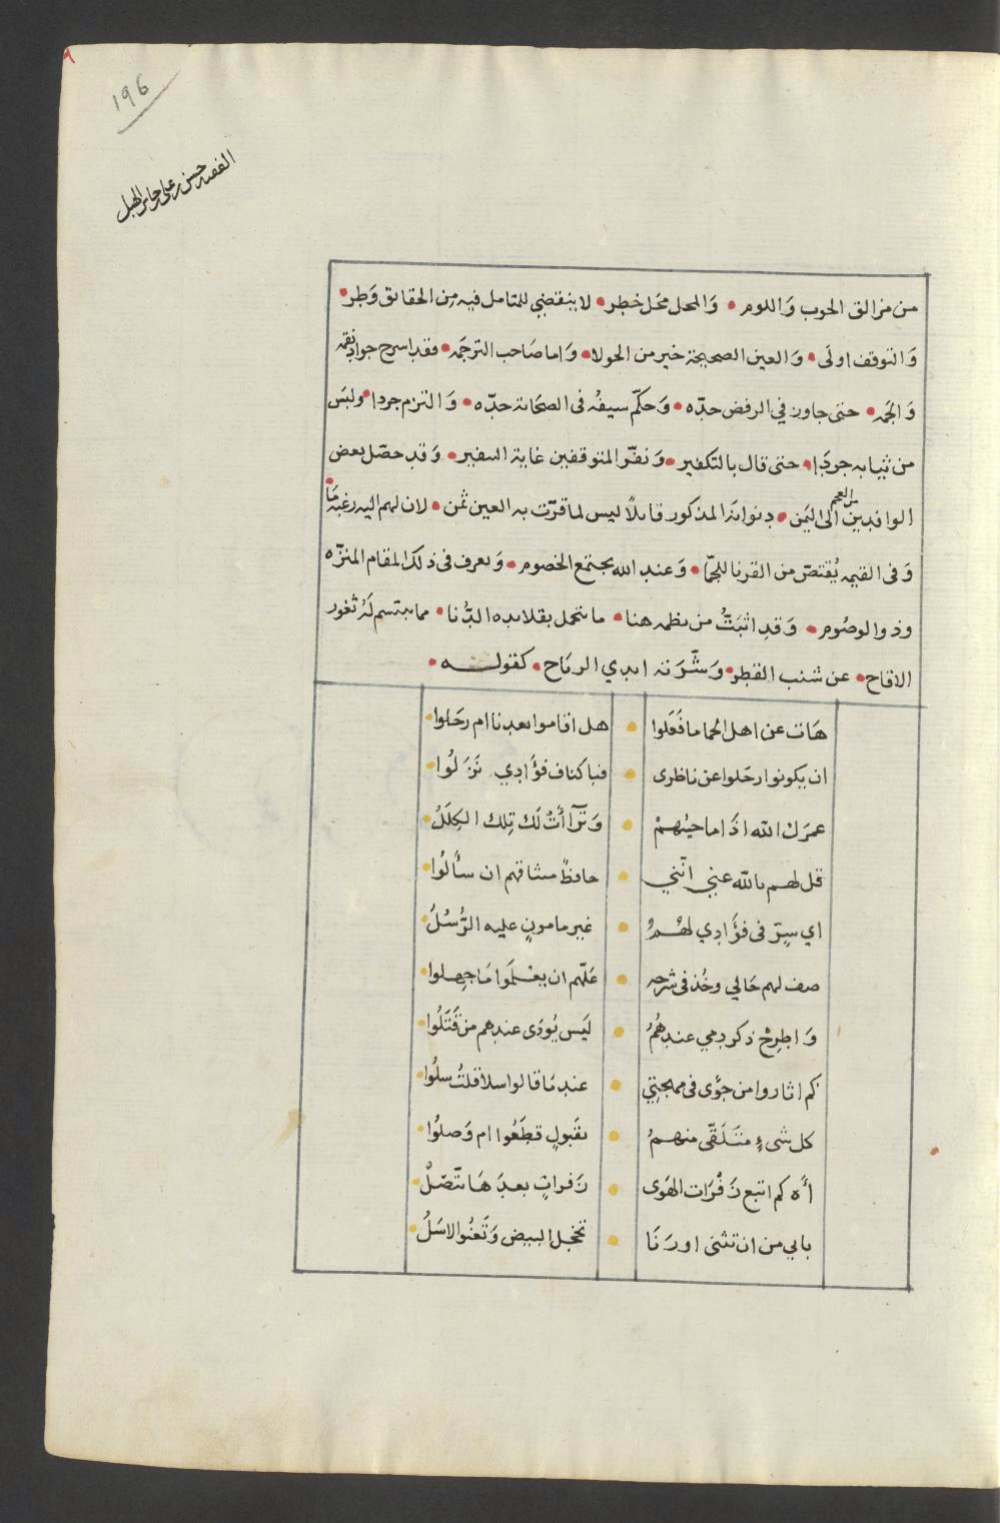 ١٩٦
الفقيه حسن بن علي جابر الهبل
من مزالق الحوب وَاللوم • وَالمحل محَل خطِر • لا ينقضِي للمتامل فيه مِن الحقائق وَطِر •
وَالتوقف اولَى • وَالعين الصحيحة خير من الحولا • وَاما صَاحب الترجمَه • فقد اسرج جواد نقمه
وَالجمَه • حتى جاوز في الرفض حدّه • وَحكّم سيفُه فى الصحَابة حدّه • وَالتزم جردا • ولبسَ
من ثيابه جردَا • حتى قال بالتكفير • وَنفّر المتوقفين غاية النفير • وَقد حصّل بعض
الوافدين من العجم الى اليَمن • ديوانه المذكور قايلًا ليس لما قرّت به العين ثمن • لان لهم اليه رغبَة مَا •
وَفى القيمه يُقتصّ من القرنا للجمّا • وَعند الله يجتمع الخصوم • وَيعرف فى ذلك المقام المنزّه
وذو الوصُوم • وَقد اثبَتُّ من نظمه هنا • ما يتحمل بقلايده الدُّنا • مما يبتسم لَهُ ثغور
الاقاح • عن شنب القطِر • وَشّرَته ايدي الريَاح • كقوله •
هَات عن اهل الحما ما فَعَلوا • هل اقاموا بعدنا ام رحَلوا •
ان يكونوا رحَلوا عن ناظرى • فباكناف فؤَادِي نَزَلُوا •
عمرَك الله اذَا ما جئتهمْ • وَترَآأَتْ لَك تِلك الكِلَلُ •
قل لهم بالله عنِي انّني • حافظٌ ميثاقهم ان سأَلُوا •
اي سِرّ فى فؤَادِي لهُمُ • غير مامونٍ عليه الرُّسُلُ •
صف لهم حَالي وخُذ فى شرحه • عَلّهم ان يعْلمَوا مَا جهِلوا •
وَاطرِحْ ذكر دمي عندهُمُ • ليَس يُودَى عندهم من قَتَلُوا •
كم اثاروا من جوًى فى مهجتِي • عند مَا قالوا سلا قلتُ سلُوا •
كل شىءٍ متَلَقّى منهمُ • بقَبولٍ قطَعُوا ام وَصلُوا •
أَه كم اتبع زَفْرَات الهَوى • زَفراتٍ بعدَ هَا تتّصلُ •
بابي من ان تثنى اورَنَا • تخجل البيض وَتَعنُو الاسَلُ •